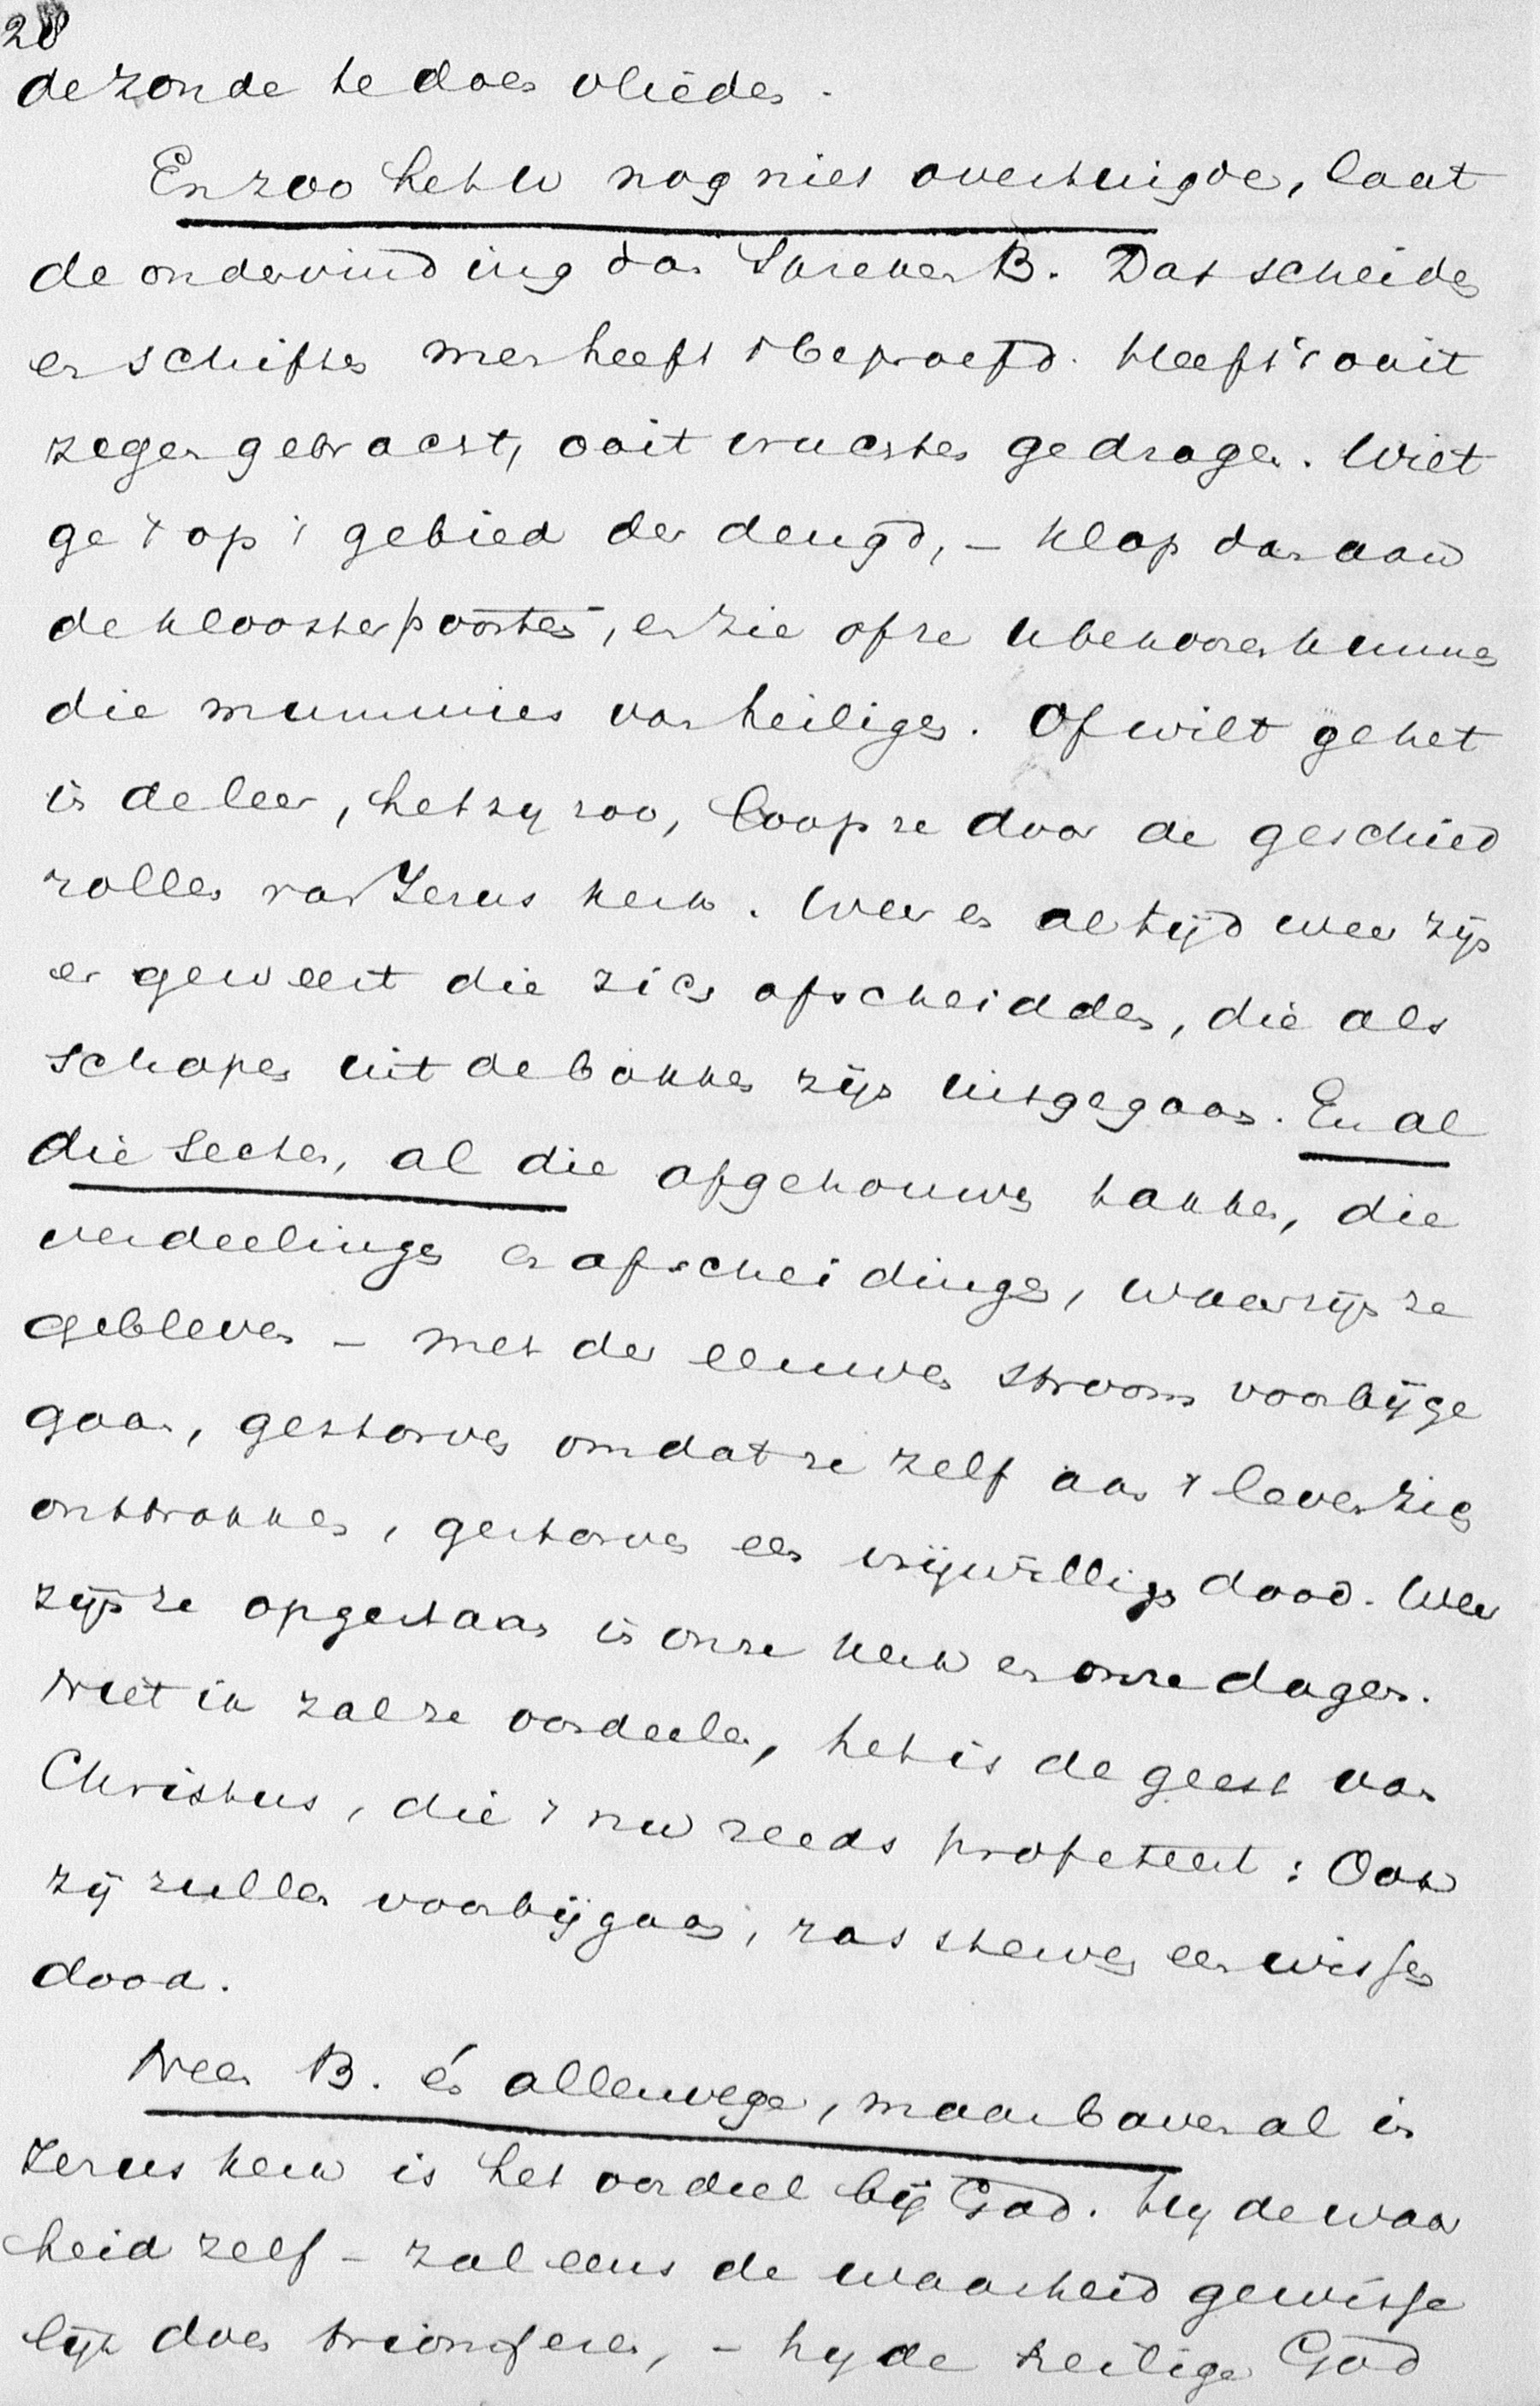 28
de zonde te doen vlieden.
En zoo het u nog niet overtuigde, laat
de ondervinding dan spreken B. Dat scheiden
en schiften men heeft 't beproefd. Heeft 't ooit
zegen gebracht, ooit vruchten gedragen. Wilt
ge 't op 't gebied der deugd, – klop dan aan
de kloosterpoorten, en zie of ze u bekoren kunnen
die mummies van heiligen. Of wilt ge het
in de leer, het zy zoo, loop ze door de geschied
rollen van Jezus kerk. Weer en altijd weer zijn
er geweest die zich afscheidden, die als
schapen uit de bokken zijn uitgegaan. En al
die secten, al die afgehouwen takken, die
verdeelingen en afscheidingen, waar zijn ze
gebleven – met den eeuwen stroom voorbijge
gaan, gestorven omdat ze zelf aan 't leven zich
onttrokken, gestorven een vrijwilligen dood. Weer
zijn ze opgestaan in onze kerk en onze dagen.
Niet ik zal ze oordeelen, het is de geest van
Christus, die 't nu reeds profeteert: Ook
zij zullen voorbijgaan, ras sterven een wissen
dood.
Neen B. én allerwege, maar bovenal in
Jezus kerk is het oordeel bij God. Hy de waar
heid zelf – zal eens de waarheid gewisse
lijk doen triomferen, – hy de heilige God